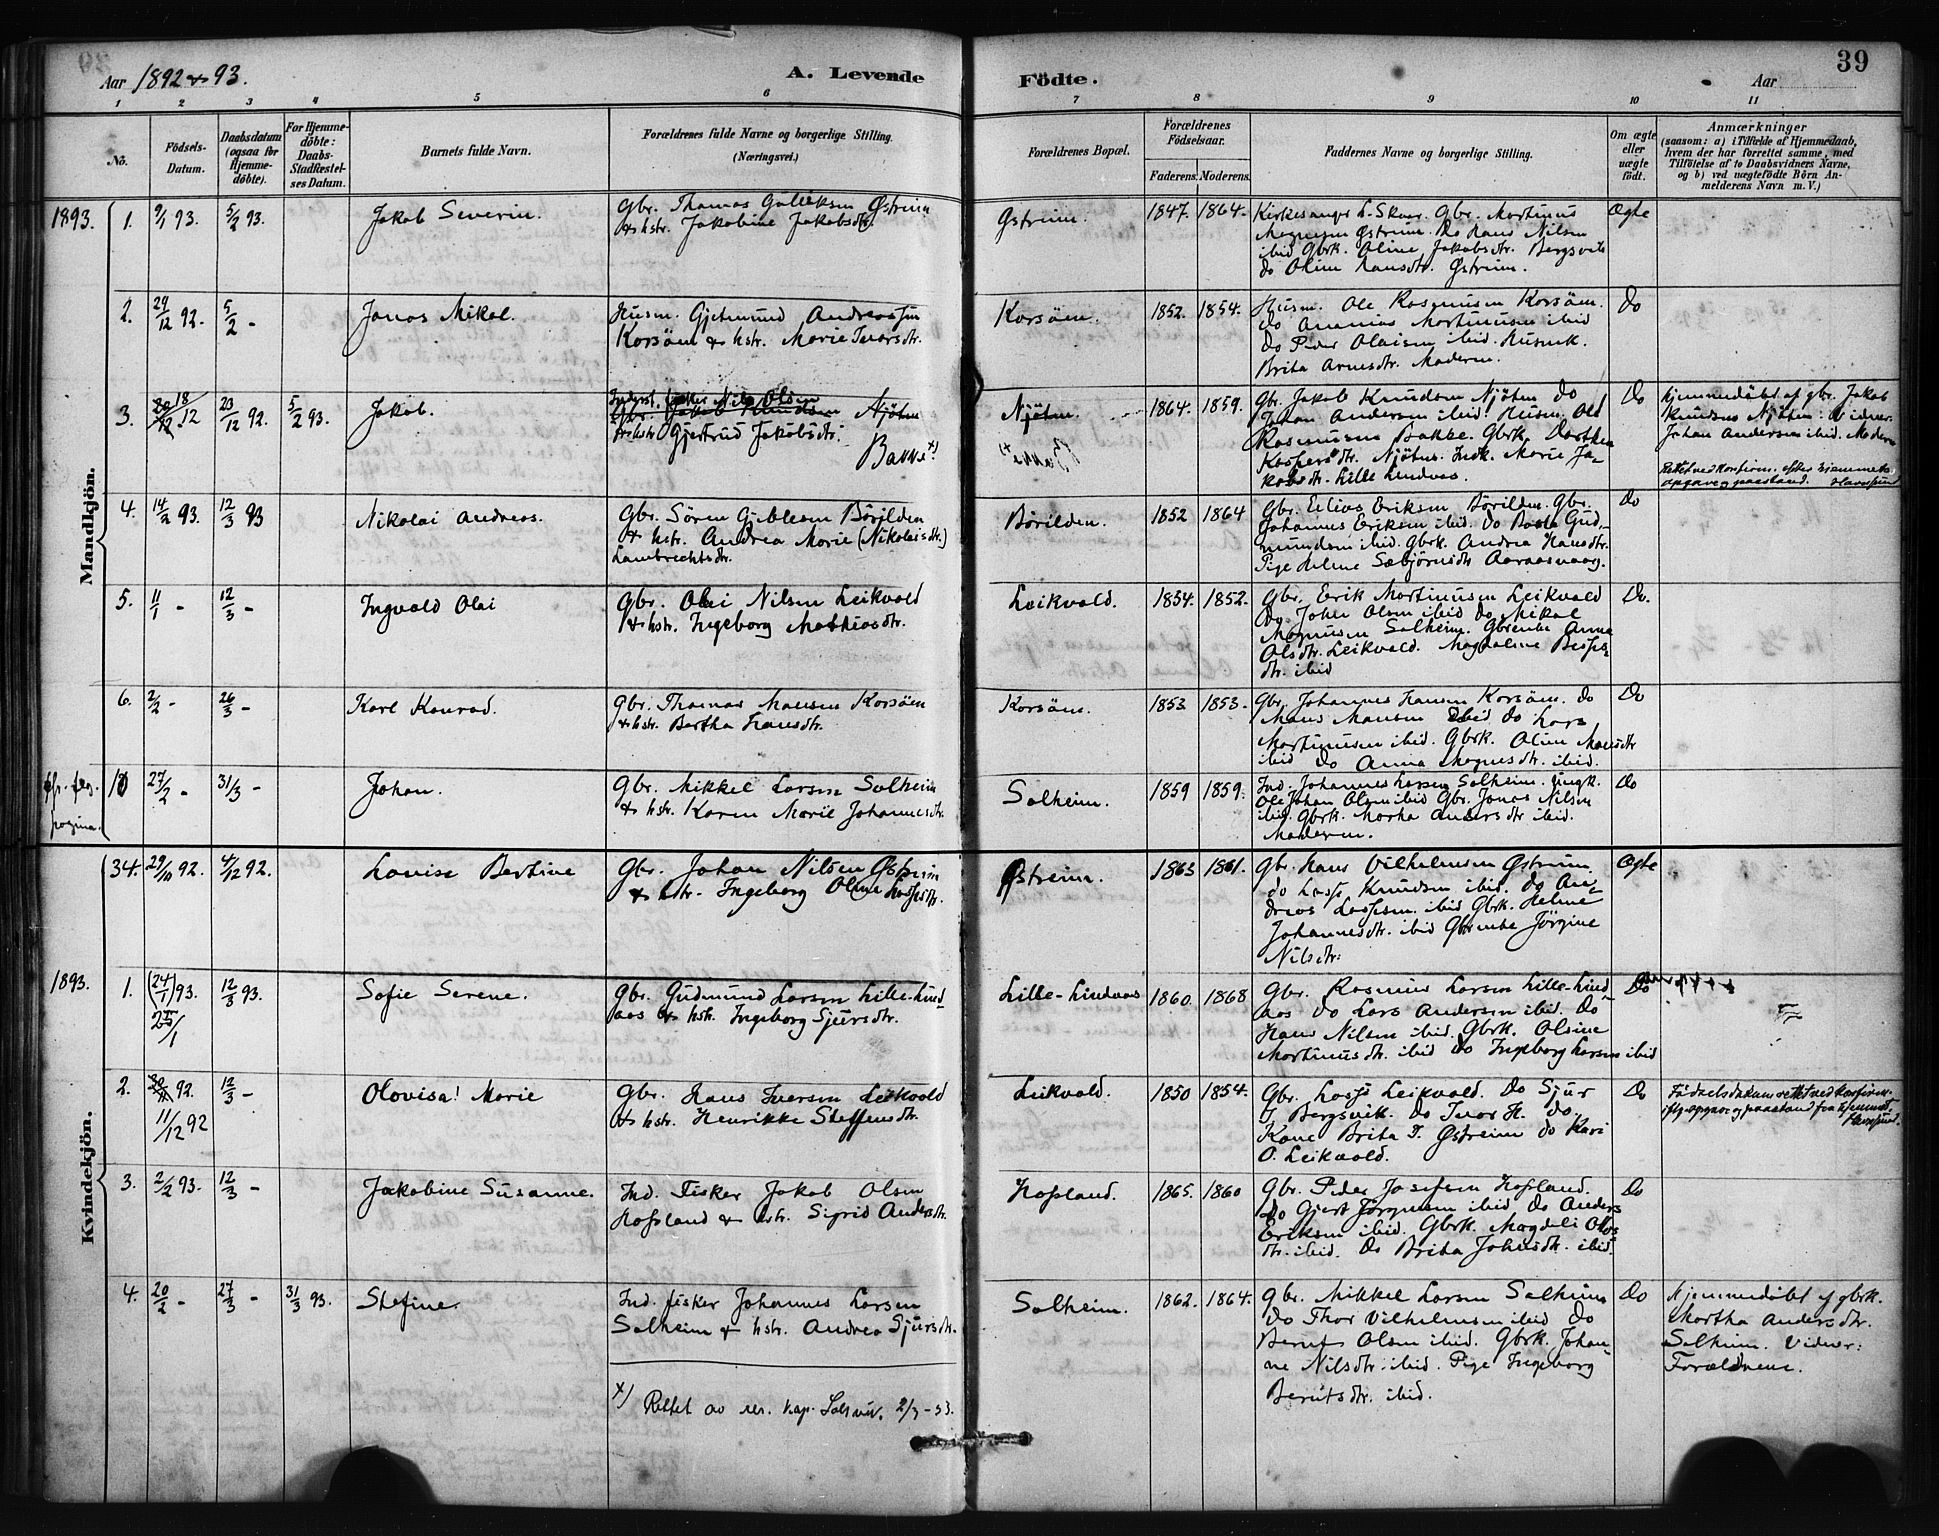 39
Aar 1892 & 93.
A. Levende Födte.
Aar
1 2 3 4 5 6 7 8 9 10 11
No.
Födsels-Datum.
Daabsdatum (ogsaa for Hjemme-döbte).
For Hjemme-döbte: Daabs-Stadfæstel-ses Datum.
Barnets fulde Navn.
Forældrenes fulde Navne og borgerlige Stilling.
(Næringsvei.)
Forældrenes Bopæl.
Forældrenes Födselsaar.
Faderens. Moderens.
Faddernes Navne og borgerlige Stilling.
Om ægte eller uægte födt.
Anmærkninger
(saasom: a) i Tilfælde af Hjemmedaab,
hvem der har forrettet samme, med
Tilföielse af to Daabsvidners Navne,
og b) ved uægtefödte Börn An-
melderens Navn m. V.)
Mandkjön.
1893. 1. 9/1 93. 5/2 93. Jakob Severin.
Gbr. Thomas Østreim
& hstr. Jakobine Jakobsdtr.
Østreim. 1847. 1864.
Kirkesanger L. Skaar. Gbr. Martinus
Magnesen Østreim. Do Hans Nilsen
ibid Gbrk. Oline Jakobsdtr. Bergsvik
do Oline Hansdtr. Østreim.
Ægte
2. 29/12 92. 5/2 - Jonas Mikal.
Husm. Gjetmund Andreassen
Korsöen & hstr. Marie Ivarsdtr.
Korsöen. 1852. 1854.
Husm. Ole Rasmusen Korsöen.
do Ananias Martinusen ibid
do Peder Olaisen ibid. Husmk.
Brita Arnesdtr. Moderen.
Do
3. 18/12 23/12 92. 5/2 93. Jakob.
Inderst. fisker Nils Olsen
Gbr. Jakob Knudsen Njöten
& hstr Gjertrud Jakobsdtr.
Bakke x)
Njöten. 1864. 1859.
Gbr. Jakob Knudsen Njöten Do
Johan Andersen ibid. Husm. Ole
Rasmusen Bakke. Gbrk. Dorthea
Kaspersdtr. Njöten. Indk. Marie Ja-
kobsdtr. Lille Lindaas.
Do
Hjemmedöbt af gbr. Jakob
Knudsen Njöten. Vidner:
Johan Andersen ibid. Moderen
Rettet ved konfirm. efter hjemmets
opgave og paastand.
4. 14/2 93. 12/3 93 Nikolai Andreas.
Gbr. Sören Börilden
& hstr. Andrea Marie (Nikolaisdtr.)
Lambrechtsdtr.
Börilden. 1852 1864
Gbr. Elias Eriksen Börilden. Gbr.
Johannes Eriksen ibid. Do Gud-
mundsen ibid. Gbrk. Andrea Hansdtr.
Pige Helene Sæbjörnsdtr Aaraasvaag.
Do
5. 11/1 - 12/3 - Ingvald Olai
Gbr. Olai Nilsen Leikvold
& hstr. Ingeborg Mathiasdtr.
Leikvold. 1854. 1852.
Gbr. Erik Martinusen Leikvold
Do John Olsen ibid Do Mikal
Magnusen Solheim. Gbrenke Anna
Olsdtr. Leikvold. Magdalene
dtr. ibid
Do.
6. 2/2 - 26/3 - Karl Konrad.
Gbr. Thomas Monsen Korsöen
& hstr. Bertha Hansdtr.
Korsöen. 1853 1853.
Gbr. Johannes Hansen Korsöen. Do
Mons Monsen ibid. Do Lars
Martinusen ibid. Gbrk. Oline Monsdtr
ibid Do Anna Magnusdtr. ibid.
Do
pagina.
27/2 - 31/3 - Johan.
Gbr. Mikkel Larsen Solheim
& hstr. Karen Marie Johannesdtr.
Solheim. 1859 1859.
Ind. Johannes Larsen Solheim. Ungk.
Ole Johan Olsen ibid Gbr. Jonas Nilsen
ibid. Gbrk. Martha Andersdtr ibid.
Moderen.
Do
Kvindekjön.
34. 29/10 92. 4/12 92. Lovise Bertine
Gbr. Johan Nilsen Østreim
& hstr. Ingeborg Oline
Østreim. 1863 1861.
Gbr. Hans Vilhelmsen Østreim
do Lasse Knudsen ibid. Do An-
dreas Lassesen ibid Gbrk. Helene
Johannesdtr. ibid Gbrenke Jörgine
Nilsdtr.
Ægte
1893. 1. (24/1) 93. 12/3 93. Sofie Serene.
25/1
Gbr. Gudmund Larsen Lille-Lind-
aas & hstr. Ingeborg Sjursdtr.
Lille-Lindaas 1860. 1868
Gbr. Rasmus Larsen Lille-Lind-
aas do Lars Andersen ibid. Do
Hans Nilsen ibid. Gbrk. Olsine
Martinusdtr. ibid Do Ingeborg Larsen ibid
Do
2. 92. 12/3 - Olovisa! Marie
11/12 92
Gbr. Hans Iversen Leikvold
& hstr. Henrikke Steffensdtr.
Leikvold. 1850 1854.
Gbr. Lasse Leikvold. Do Sjur
Bergsvik. Do Ivar H. do.
Kone Brita T. Østreim do Kari
O. Leikvold.
Do
Födselsdatum rettet ved konfirm.
opgave og paastand fra hjemmet.
3. 2/2 93. 12/3 - Jakobine Susanne.
Ind. Fisker Jakob Olsen
Hopland & hstr. Sigrid Andersdtr.
Hopland. 1865. 1860
Gbr. Peder Josefsen Hopland.
Do Gjert Jörgensen ibid. Do Anders
Eriksen ibid. Gbrk. Magdeli Ols-
dtr. ibid. Do Brita Johnsdtr. ibid.
Do
4. 20/2 - 27/3 - 31/3 93. Stefine.
Ind. fisker Johannes Larsen
Solheim & hstr. Andrea Sjursdtr.
Solheim. 1862. 1864.
Gbr. Mikkel Larsen Solheim
Do Thor Vilhelmsen ibid Do
Bernt Olsen ibid. Gbrk. Johan-
ne Nilsdtr. ibid. Pige Ingeborg
Berntsdtr. ibid.
Do
Hjemmedöbt af gbrk.
Martha Andersdtr.
Solheim. Vidner:
Forældrene.
x) Rettet av res. kap.